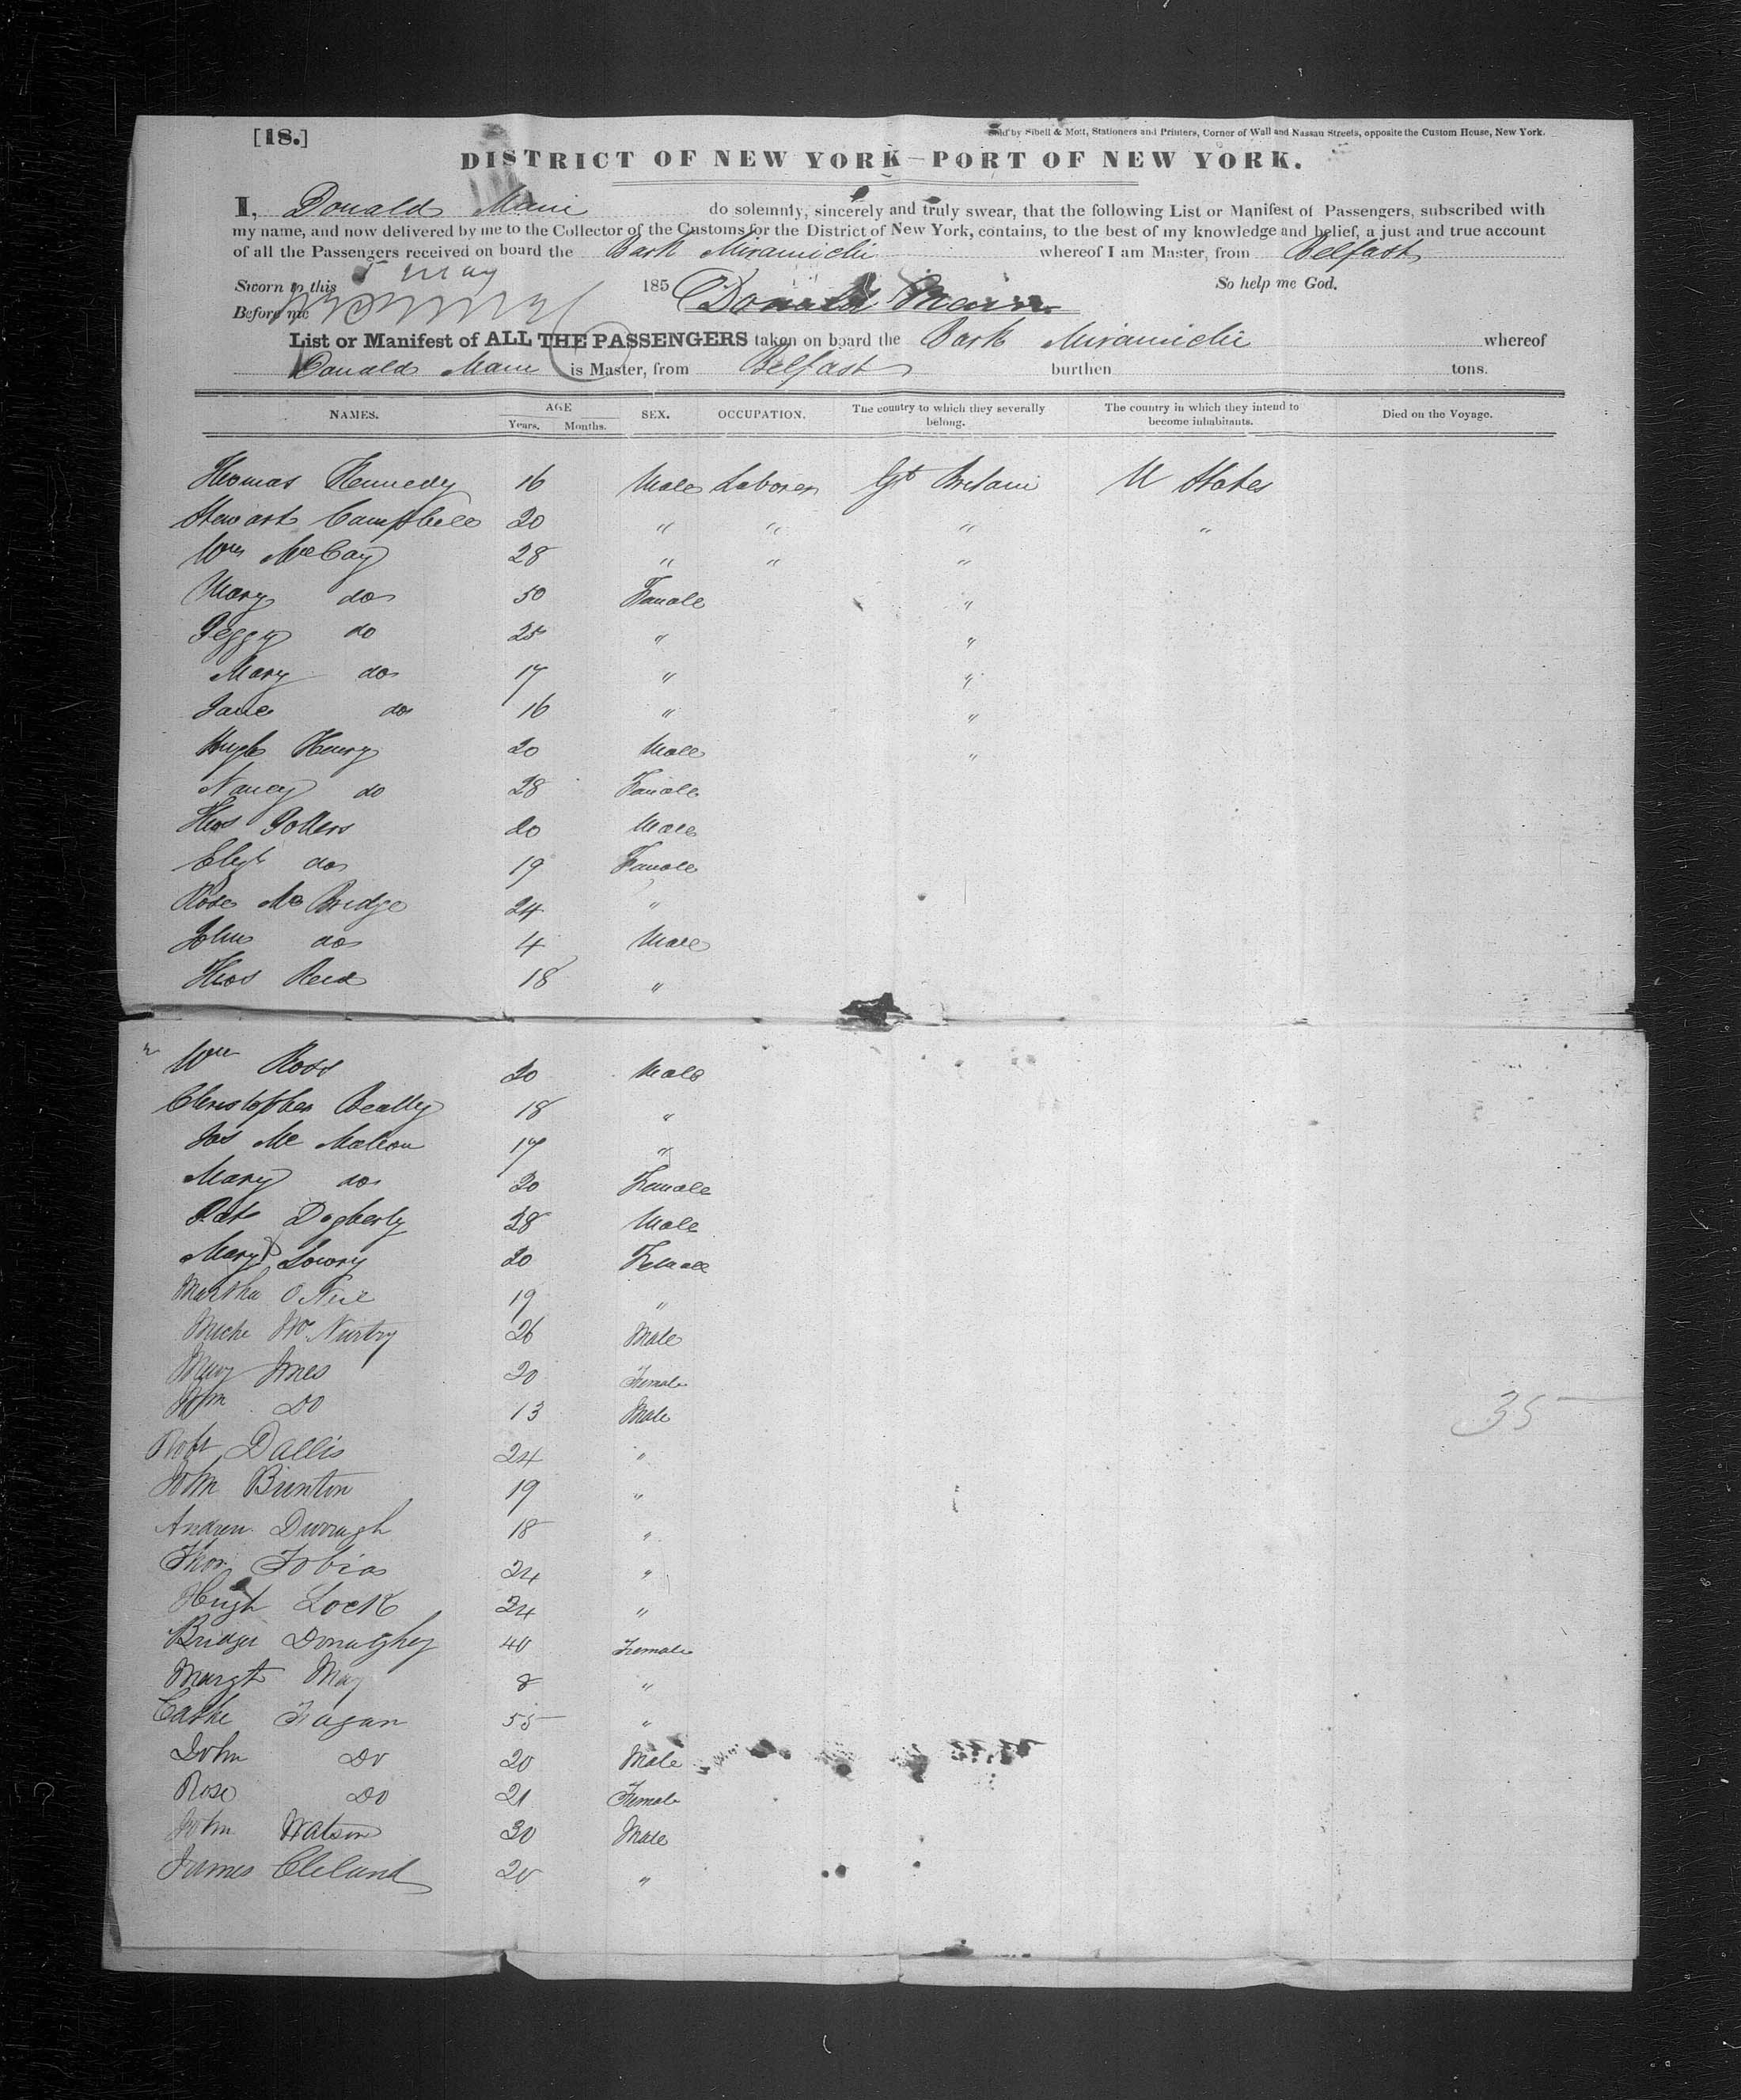 [18.]
Sold by Sibell & Mott, Stationers and Printers, Corner of Wall and Nassau Streets, opposite the Custom House, New York.
DISTRICT OF NEW YORK—PORT OF NEW YORK.
I, Donald Mann do solemnly, sincerely and truly swear, that the following List or Manifest of Passengers, subscribed with
my name, and now delivered by me to the Collector of the Customs for the District of New York, contains, to the best of my knowledge and belief, a just and true account
of all the Passengers received on board the Bark Miramichi whereof I am Master, from Belfast
Sworn to this 5 May 185 Donald Mann So help me God.
Before me
List or Manifest of ALL THE PASSENGERS taken on board the Bark Miramichi whereof
Donald Mann is Master, from Belfast burthen tons.
NAMES. AGE Years. Months. SEX. OCCUPATION. The country to which they severally belong. The country in which they intend to become inhabitants. Died on the Voyage.
Thomas Kennedy 16 Male Laborer Gt Britain U States
Stewart Campbell 20 " " " "
Wm McCay 28 " " "
Mary do 50 Female "
Peggy do 25 " "
Mary do 17 " "
Jane do 16 " "
Hugh Henry 20 Male "
Nancy do 28 Female
Thos 20 Male
do 19 Female
Rose McBridge 24 "
John do 4 Male
Thos Reid 18 "
Wm Ross 20 Male
Christopher Beatty 18 "
Jas Mc Mahon 17 "
Mary do 20 Female
Pat Dogherty 28 Male
Mary Lowry 20 Female
Martha O Neil 19 "
Mc 26 Male
Mary Jones 20 Female
Do 13 Male
Robt Dallis 24 "
John Brinton 19 "
Andrew 18 "
Thos Tobias 24 "
Hugh Lock 24 "
Bridget Donaghey 40 Female
Margt May 8 "
Cathe Fagan 55 "
John Do 20 Male
Rose Do 21 Female
John Watson 30 Male
James Cleland 20 "
35